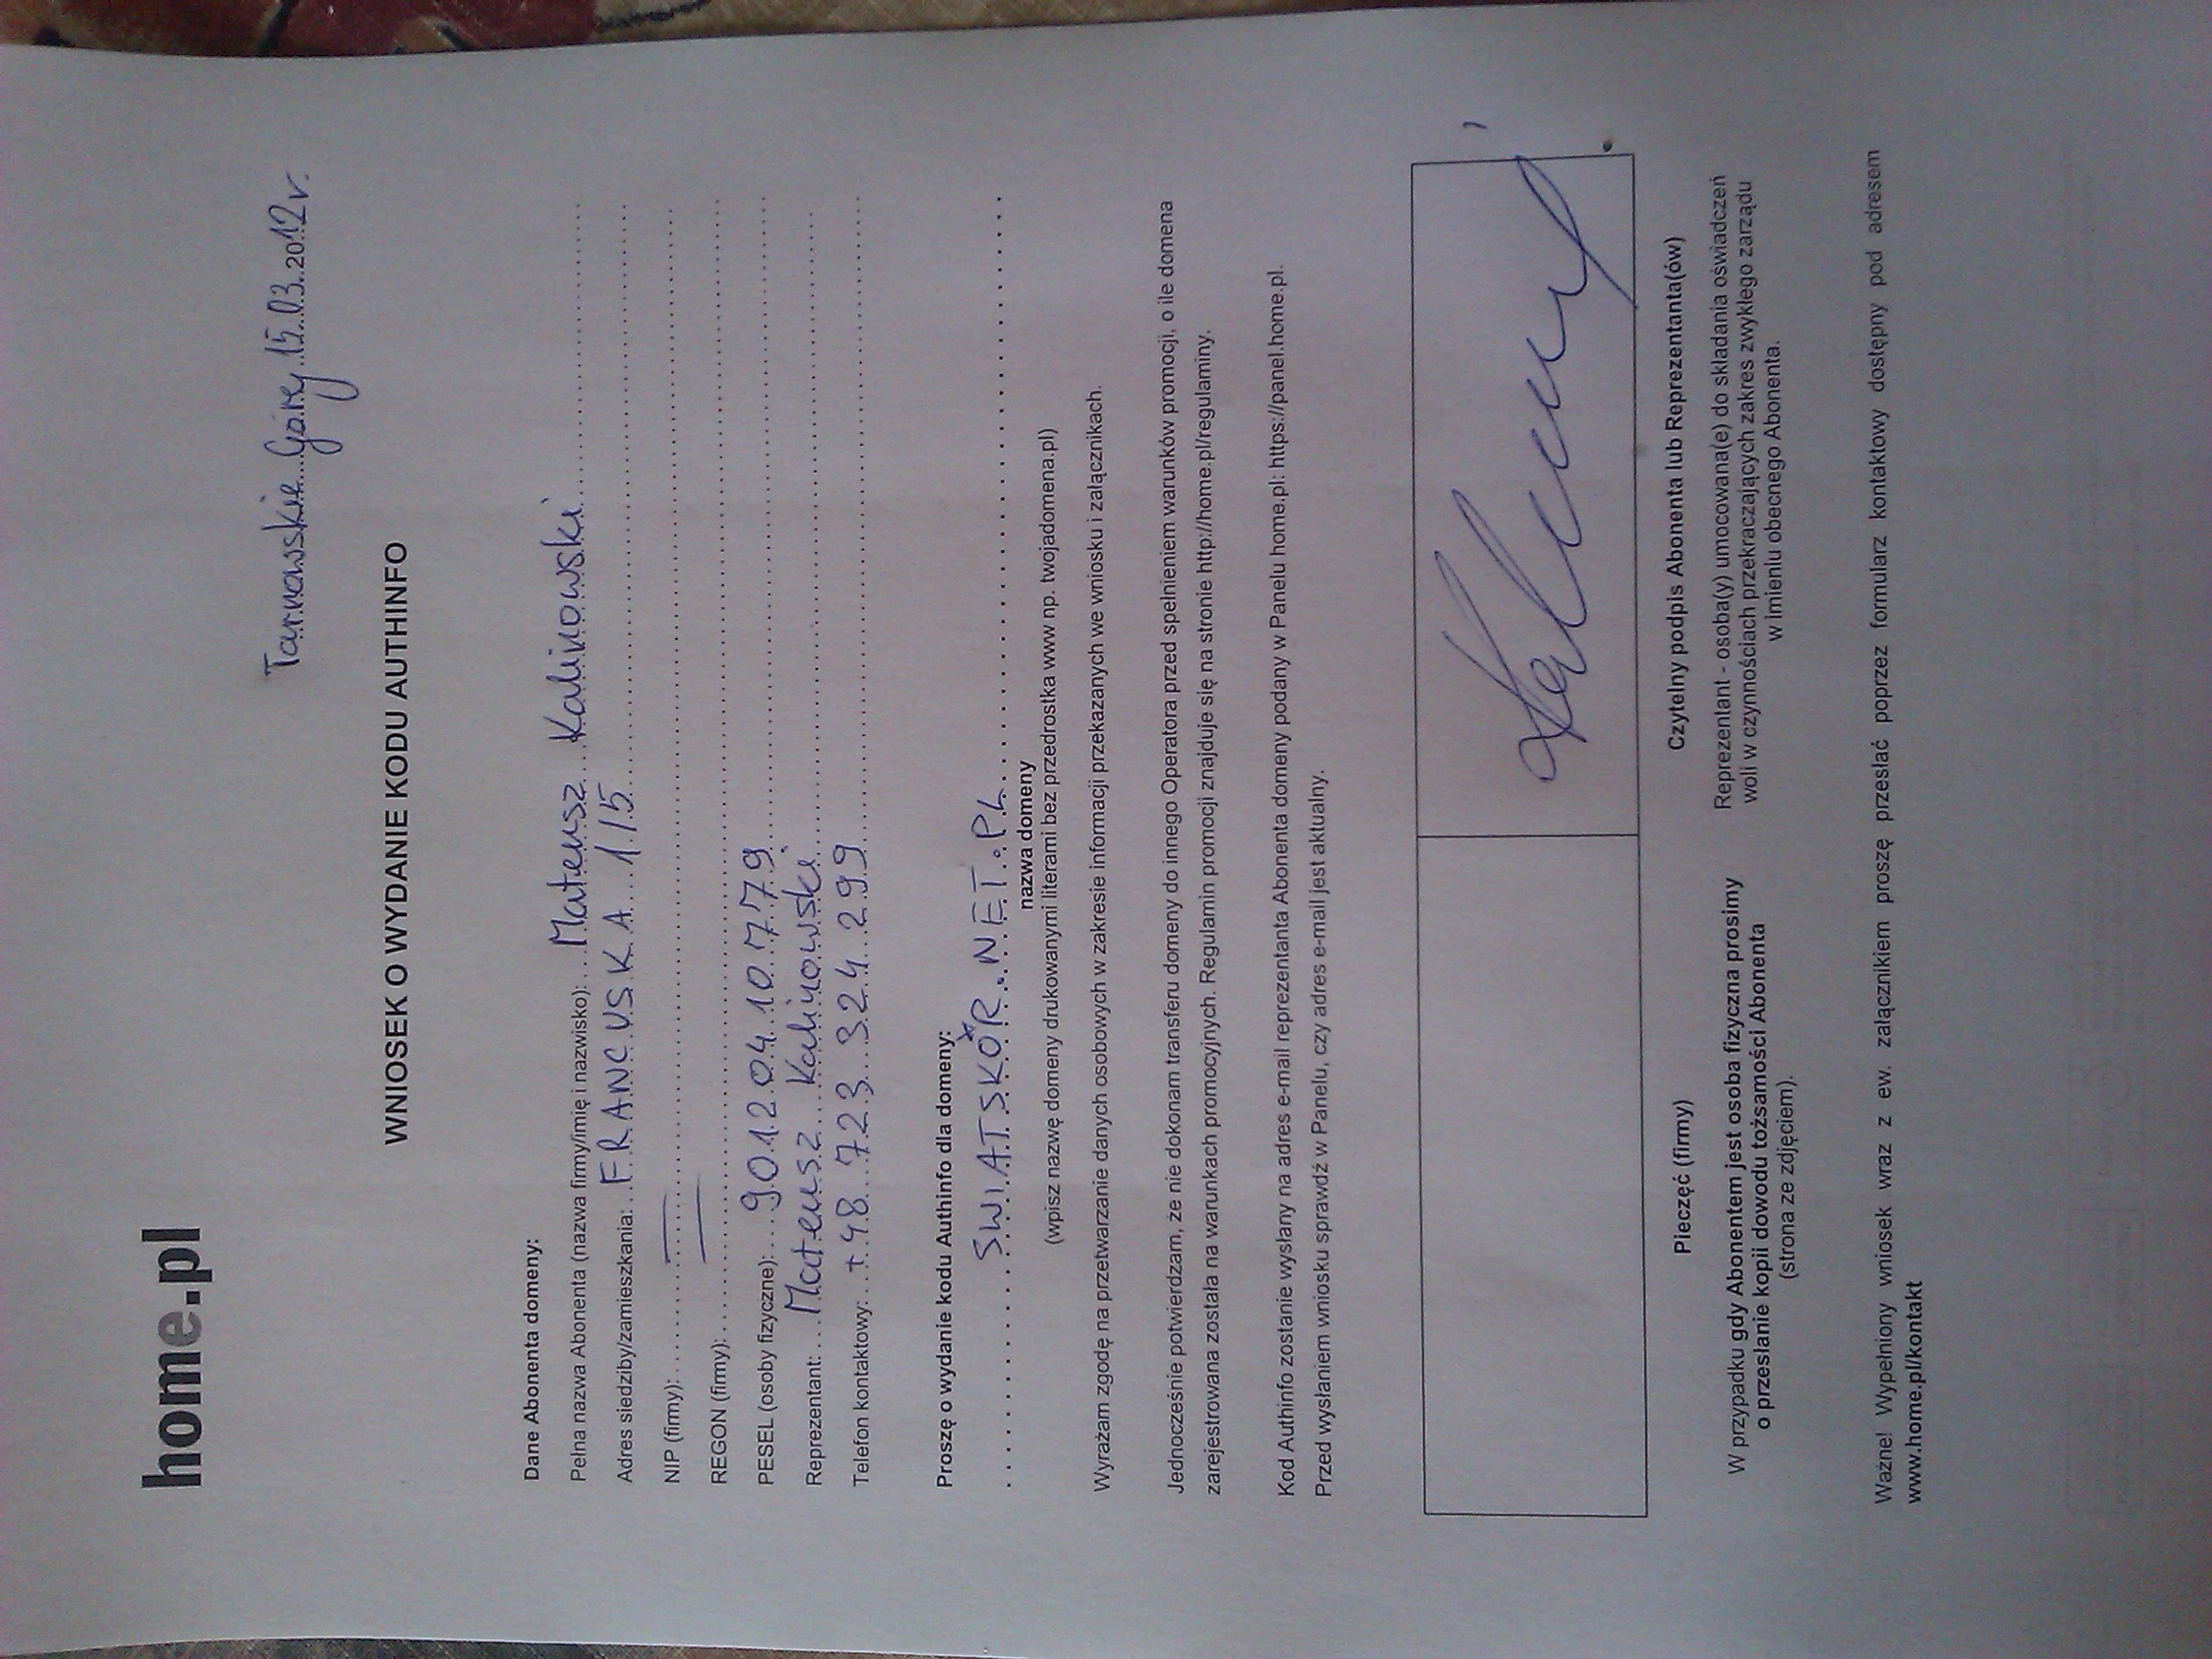 home.pl
Tarnowskie Góry 15.03.2012r.
WNIOSEK O WYDANIE KODU AUTHINFO
Dane Abonenta domeny:
Pełna nazwa Abonenta (nazwa firmy/imię i nazwisko): Mateusz Kalinowski
Adres siedziby/zamieszkania: FRANCUSKA 1/5
NIP (firmy): —
REGON (firmy): —
PESEL (osoby fizyczne): 90120410779
Reprezentant: Mateusz Kalinowski
Telefon kontaktowy: +48 723 324 299
Proszę o wydanie kodu Authinfo dla domeny:
SWIATSKÓR.NET.PL
nazwa domeny
(wpisz nazwę domeny drukowanymi literami bez przedrostka www np. twojadomena.pl)
Wyrażam zgodę na przetwarzanie danych osobowych w zakresie informacji przekazanych we wniosku i załącznikach.
Jednocześnie potwierdzam, że nie dokonam transferu domeny do innego Operatora przed spełnieniem warunków promocji, o ile domena
zarejestrowana została na warunkach promocyjnych. Regulamin promocji znajduje się na stronie http://home.pl/regulaminy.
Kod Authinfo zostanie wysłany na adres e-mail reprezentanta Abonenta domeny podany w Panelu home.pl: https://panel.home.pl.
Przed wysłaniem wniosku sprawdź w Panelu, czy adres e-mail jest aktualny.
Pieczęć (firmy)
W przypadku gdy Abonentem jest osoba fizyczna prosimy
o przesłanie kopii dowodu tożsamości Abonenta
(strona ze zdjęciem).
Czytelny podpis Abonenta lub Reprezentanta(ów)
Reprezentant - osoba(y) umocowana(e) do składania oświadczeń
woli w czynnościach przekraczających zakres zwykłego zarządu
w imieniu obecnego Abonenta.
Ważne! Wypełniony wniosek wraz z ew. załącznikiem proszę przesłać poprzez formularz kontaktowy dostępny pod adresem
www.home.pl/kontakt